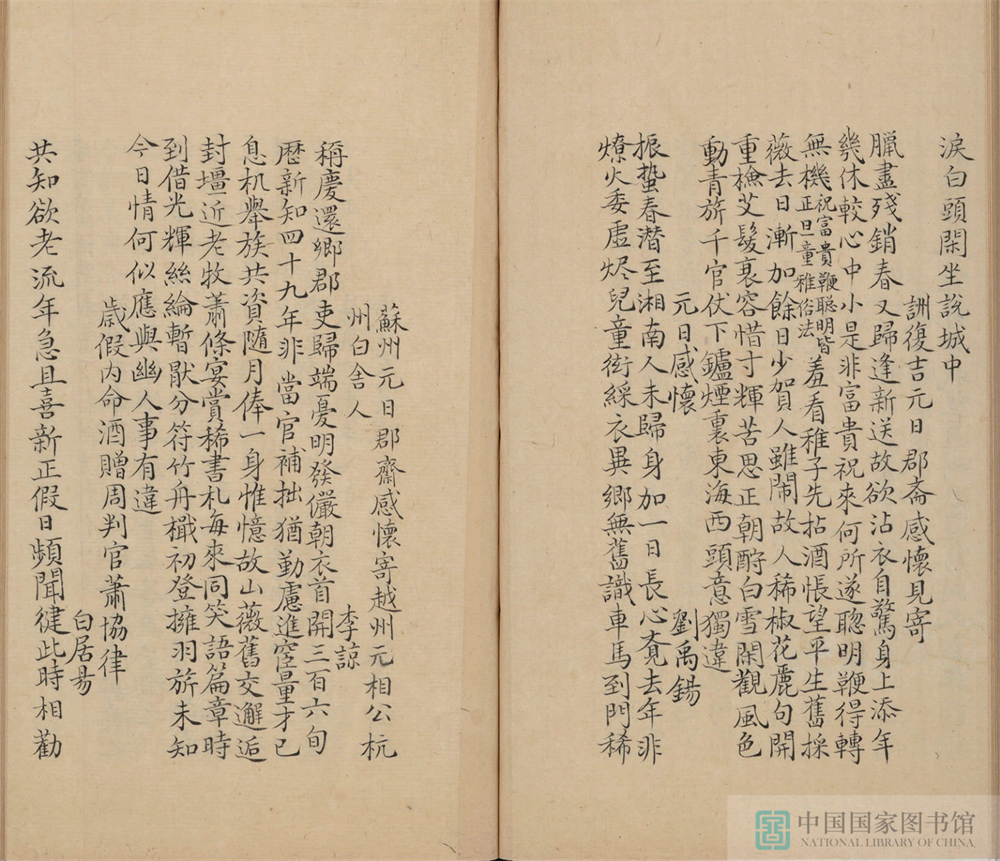 淚白頭閑坐說城中
詶復吉元日郡斎感懷見寄
臘盡殘銷春又歸逢新送故欲沾衣自驚身上添年
幾休較心中小是非富貴祝來何所遂聦明鞭得轉
無機正旦童稚俗法祝富貴鞭聡明皆羞看稚子先拈酒悵望平生舊採
薇去日漸加餘日少賀人雖鬧故人稀椒花麗句開
重檢艾髮衰容惜寸輝苦思正朝酧白雪閑觀風色
動青旂千官仗下鑪煙裏東海西頭意獨違
元日感懷
劉禹錫
振蟄春潛至湘南人未歸身加一日長心覔去年非
燎火委虛烬兒童衒綵衣異鄉無舊識車馬到門稀
蘇州元日郡齋感懷寄越州元相公杭
州白舍人
李諒
稱慶還鄉郡吏歸端憂明發儼朝衣首開三百六旬
歴新知四十九年非當官補拙猶勤慮進窒量才已
息机舉族共資隨月俸一身惟憶故山薇舊交邂逅
封壃近老牧蕭條宴賞稀書札每來同笑語篇章時
到借光輝絲綸暫猒分符竹舟檝初登擁羽旂未知
今日情何似應與幽人事有違
歳假内命酒贈周判官蕭協律
白居昜
共知欲老流年急且喜新正假日頻聞健此時相勸
中国国家图书馆
NATIONAL LIBRARY OF CHINA